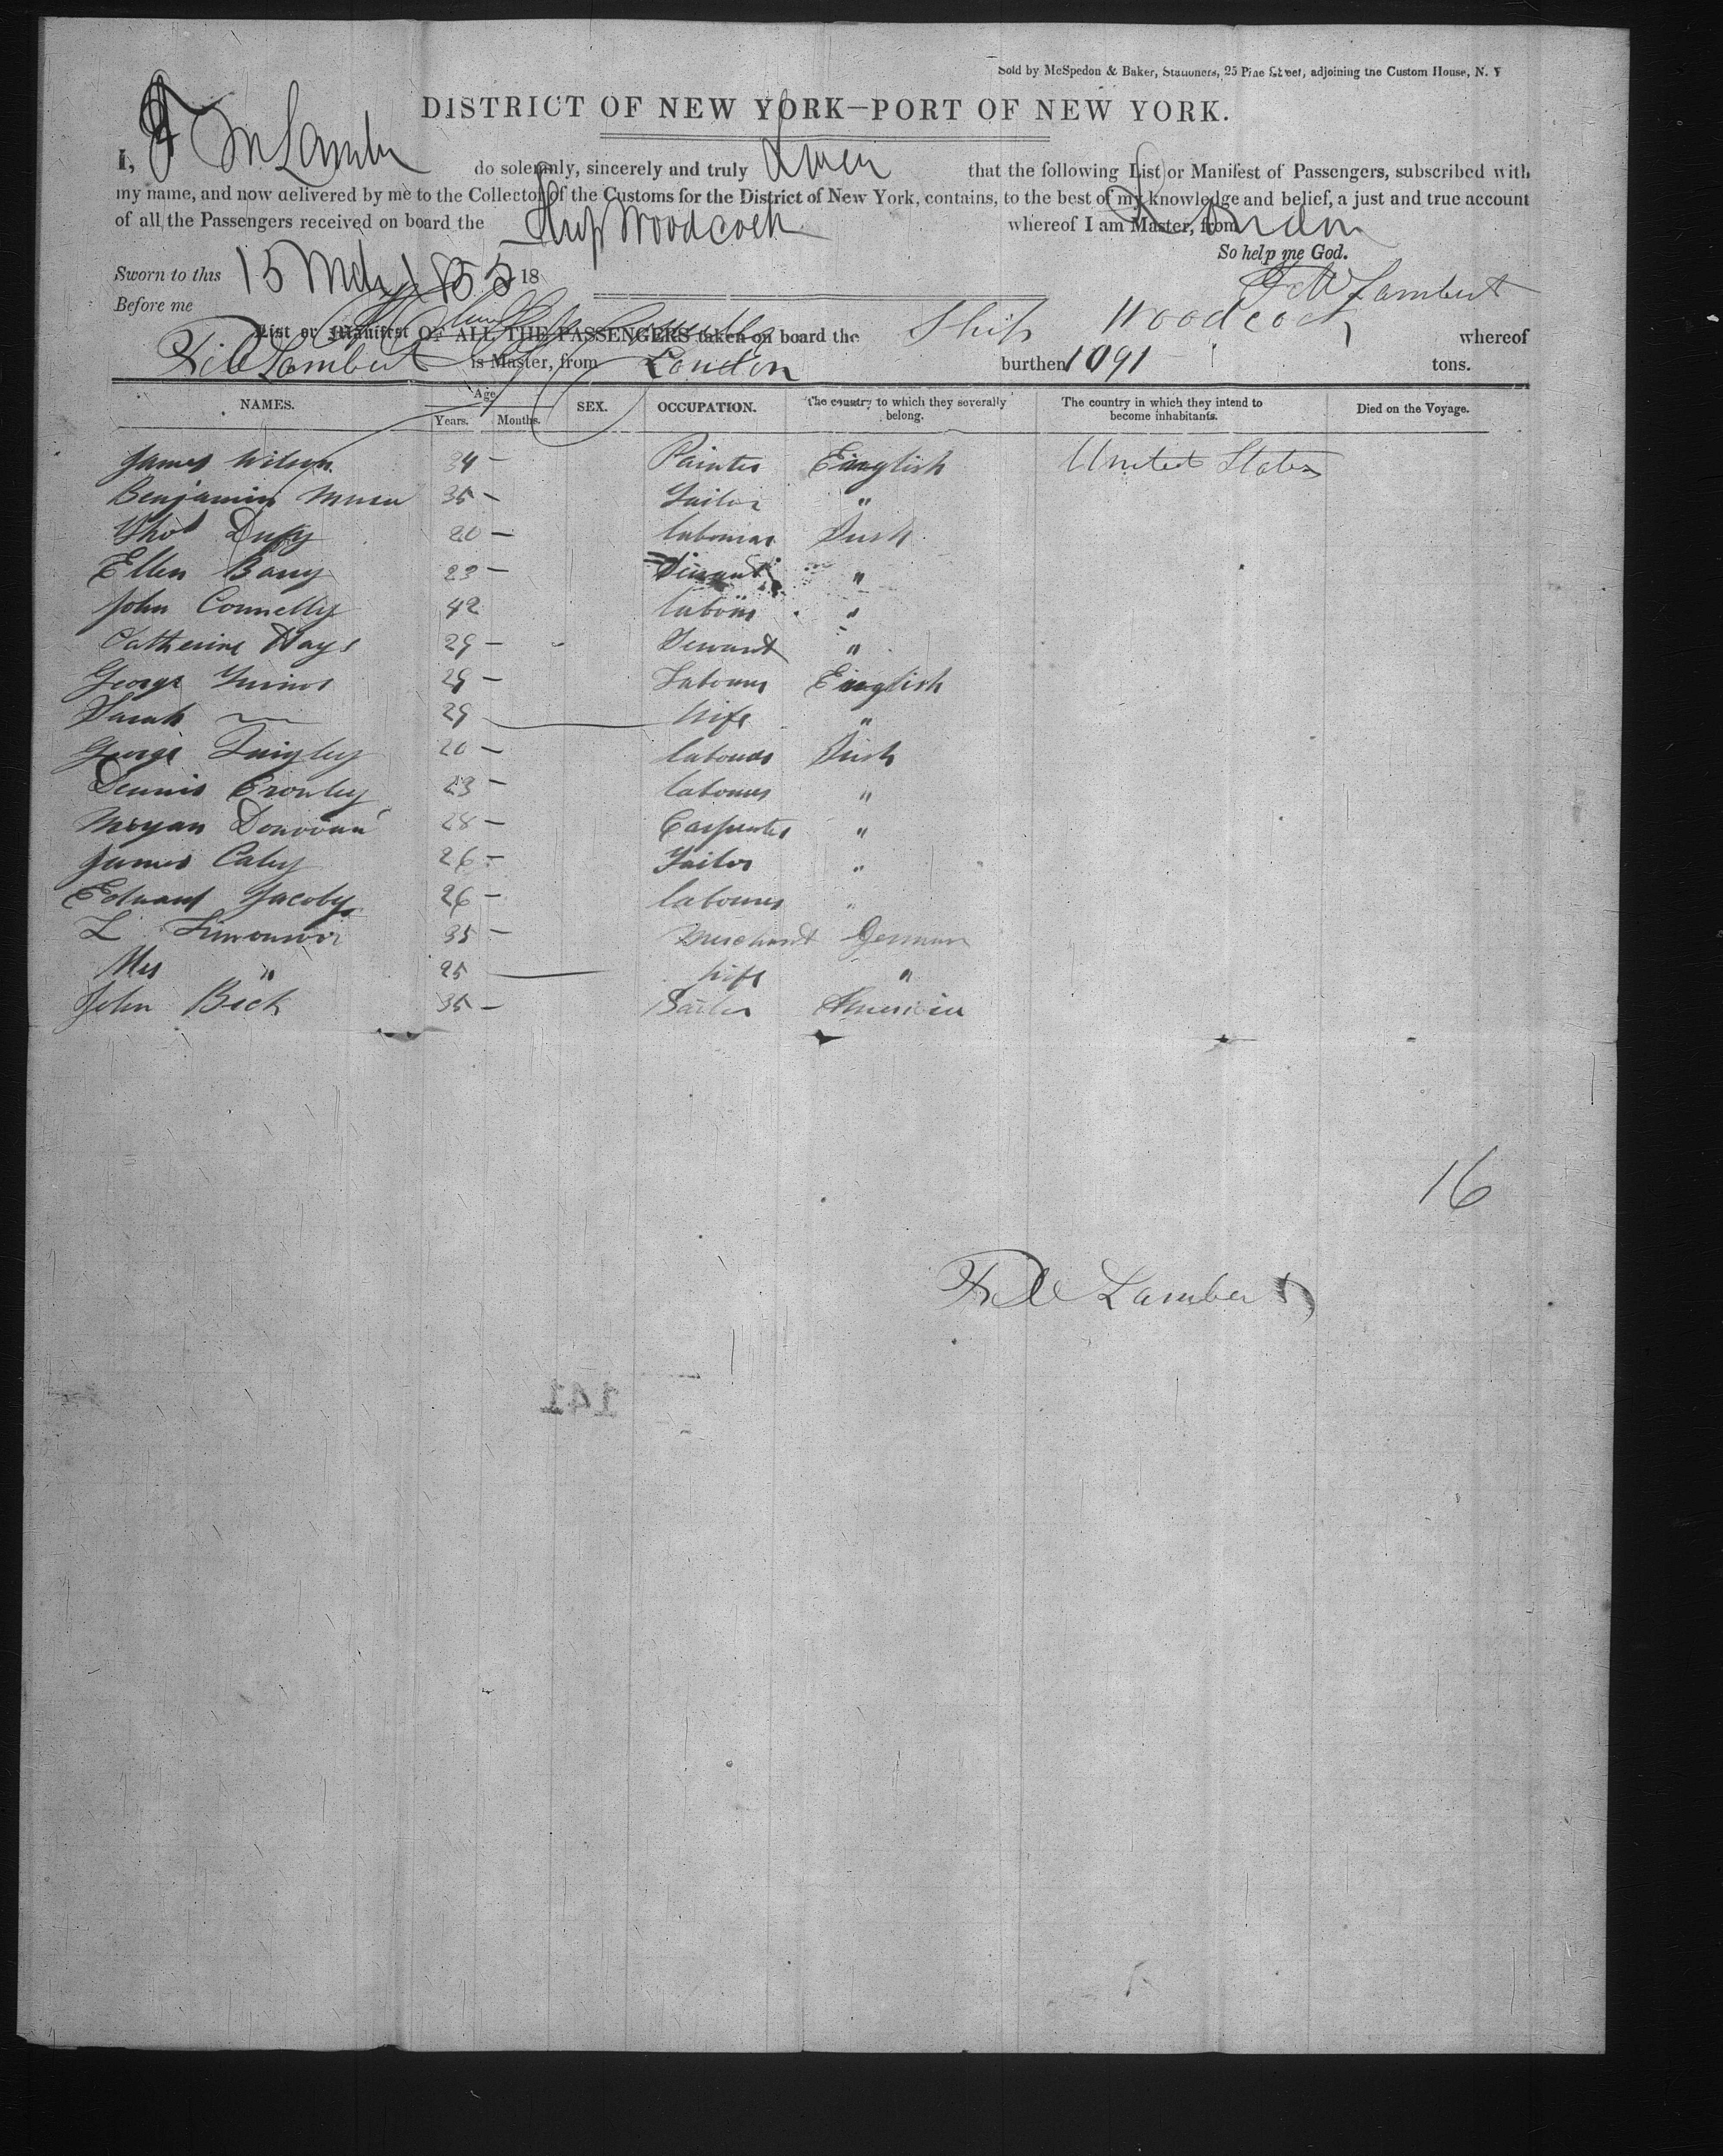 Sold by McSpedon & Baker, Stationers, 25 Pine Street, adjoining the Custom House, N. Y
DISTRICT OF NEW YORK—PORT OF NEW YORK.
I, F M Lambert do solemnly, sincerely and truly swear that the following List or Manifest of Passengers, subscribed with
my name, and now delivered by me to the Collector of the Customs for the District of New York, contains, to the best of my knowledge and belief, a just and true account
of all the Passengers received on board the Ship Woodcock whereof I am Master, from London
So help me God.
Sworn to this 15 May 1855 18
F M Lambert
Before me
List or Manifest OF ALL THE PASSENGERS taken on board the Ship Woodcock whereof
Lambert is Master, from London burthen 1091 tons.
NAMES. Age Years. Months. SEX. OCCUPATION. The country to which they severally belong. The country in which they intend to become inhabitants. Died on the Voyage.
James Wilson 34 — Painter English United States
Benjamin 35 — Tailor "
Thos Duffy 20 — labourer Irish
Ellen Barry 23 — Servant "
John Connelly 42 labourer "
Catherine Hays 29 — Servant "
George 29 — Labourer English
Sarah 29 — Wife "
George Quigley 20 — labourer Irish
Dennis Cronley 23 — labourer "
Donovan 28 — Carpenter "
James Caley 26 — Tailor "
Edward Jacoby 26 — labourer "
L 35 — Merchant German
Mrs " 25 — Wife "
John Beck 35 — American
16
Lambert
141